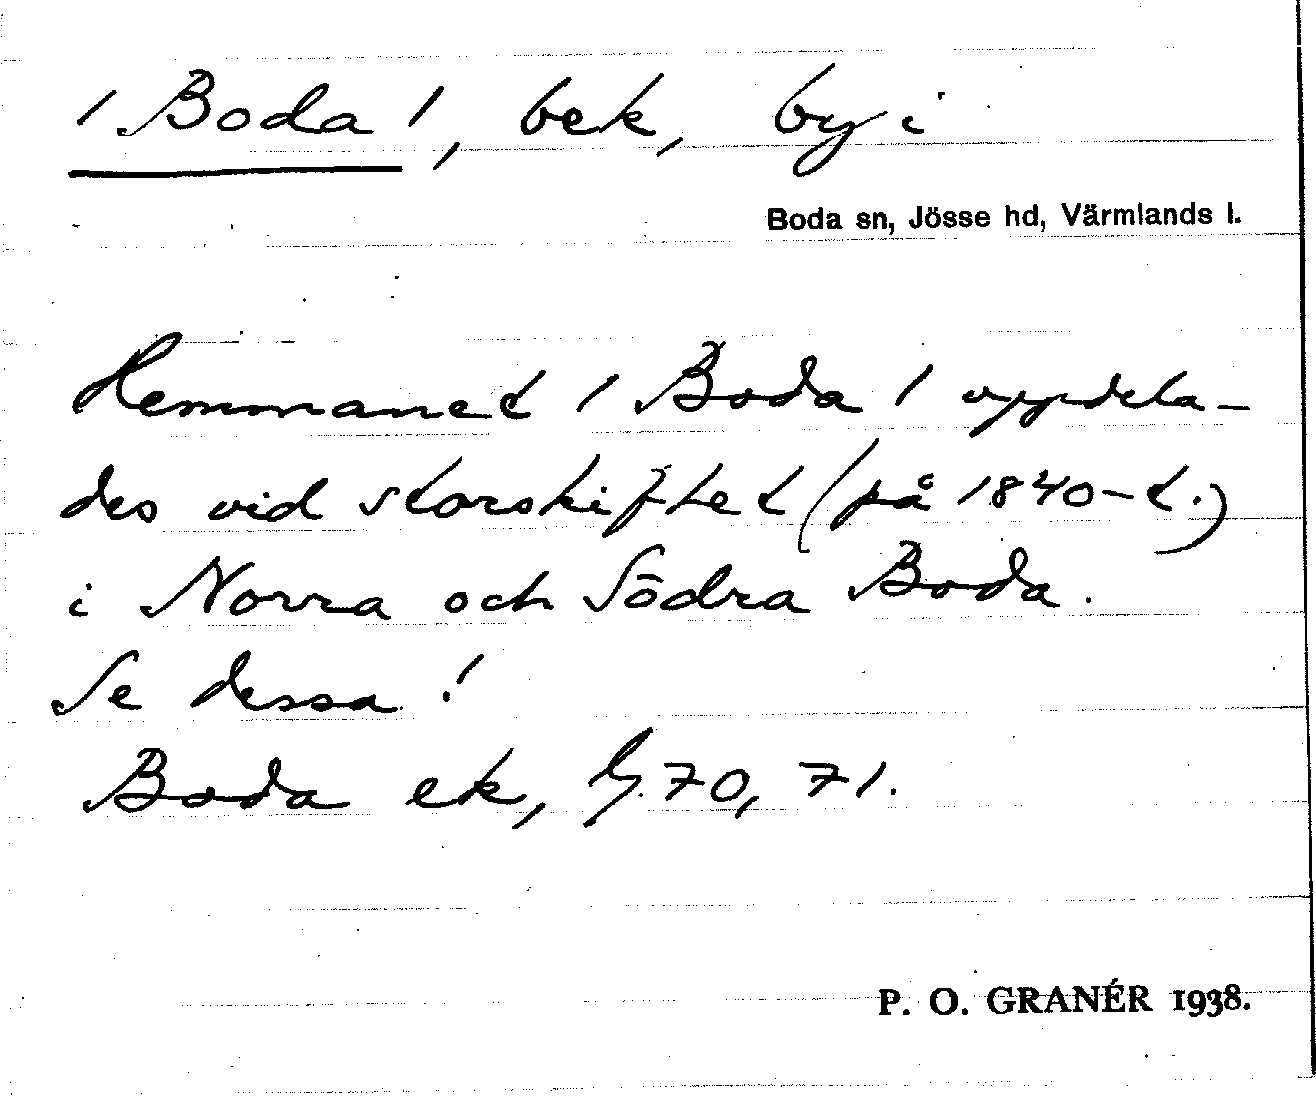 / Boda /, bek, by i
Boda sn, Jösse hd, Värmlands l.
Hemmanet / Boda / uppdela-
des vid storskiftet (på 1840-t.)
i Norra och Södra Boda.
Se dessa !
Boda ek, G. 70, 71.
P. O. GRANÉR 1938.